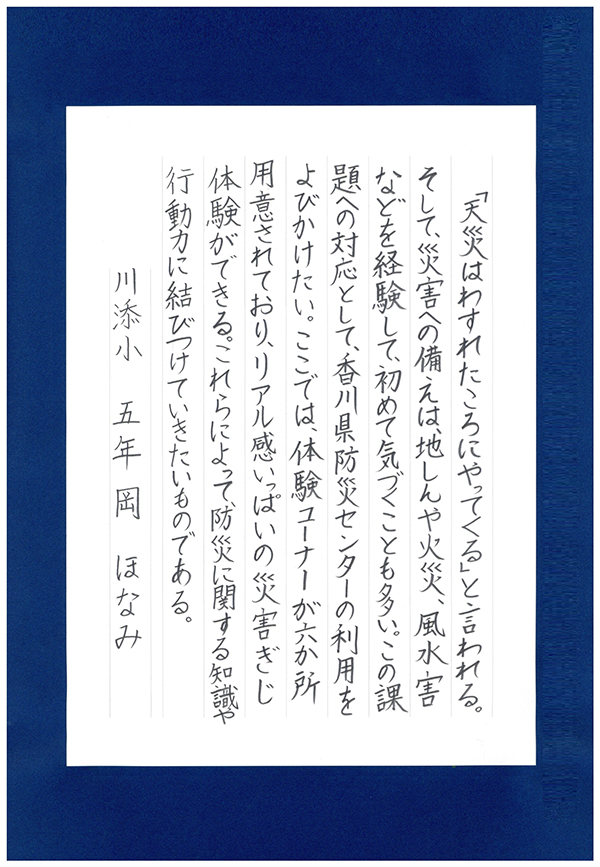 「天災はわすれたころにやってくる」と言われる。
そして、災害への備えは、地しんや火災、風水害
などを経験して、初めて気づくことも多い。この課
題への対応として、香川県防災センターの利用を
よびかけたい。ここでは、体験コーナーが六か所
用意されており、リアル感いっぱいの災害ぎじ
体験ができる。これらによって、防災に関する知識や
行動力に結びつけていきたいものである。
川添小 五年 岡 ほなみ